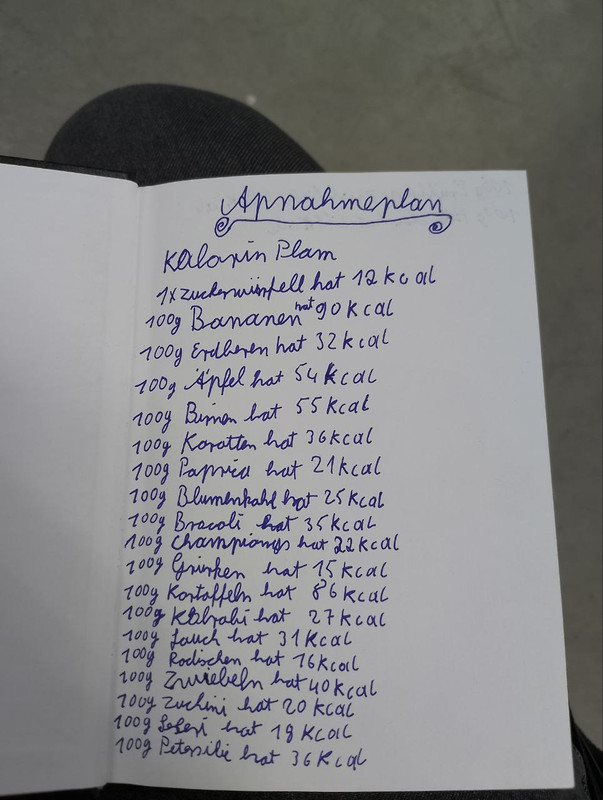 Apnahmeplan
Kalorin Plam
1x Zuckerwürfell hat 12 Kcal
100g Bananen hat 90 Kcal
100g Erdberen hat 32 Kcal
100g Äpfel hat 54 Kcal
100g Birnen hat 55 Kcal
100g Karotten hat 36 Kcal
100g Paprica hat 21 Kcal
100g Blumenkahl hat 25 Kcal
100g Bracoli hat 35 Kcal
100g Championgs hat 22 Kcal
100g Gurken hat 15 Kcal
100g Kartoffeln hat 86 Kcal
100g Kohlrabi hat 27 Kcal
100g Lauch hat 31 Kcal
100g Radischen hat 16 Kcal
100g Zwiebeln hat 40 Kcal
100g Zuchini hat 20 Kcal
100g Seleri hat 18 Kcal
100g Petersilie hat 36 Kcal